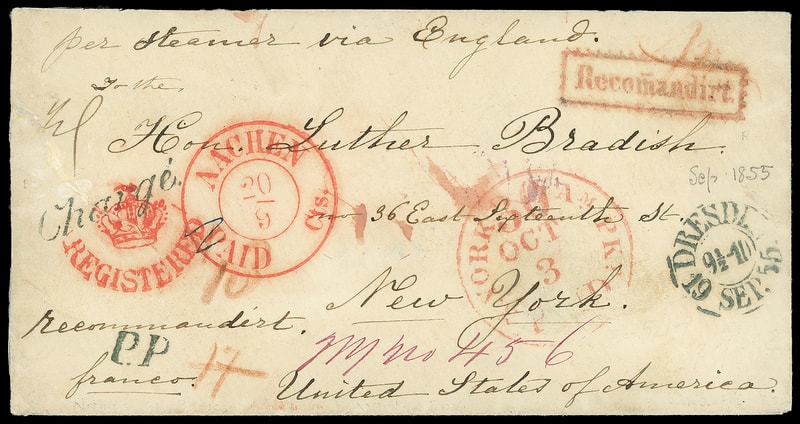 per steamer via England.
Recom̄andirt.
To the
Hon. Luther Bradish.
Sep. 1855
Chargé.
REGISTERED
AACHEN
20
9
PAID
Cts.
no 36 East Sixteenth St.
YORK AM. PKT.
OCT
3
PAID
DRESDEN
9½-10
19 SEP. 55.
New York.
recommandirt.
P.P
franco.
17
No 456
United States of America.